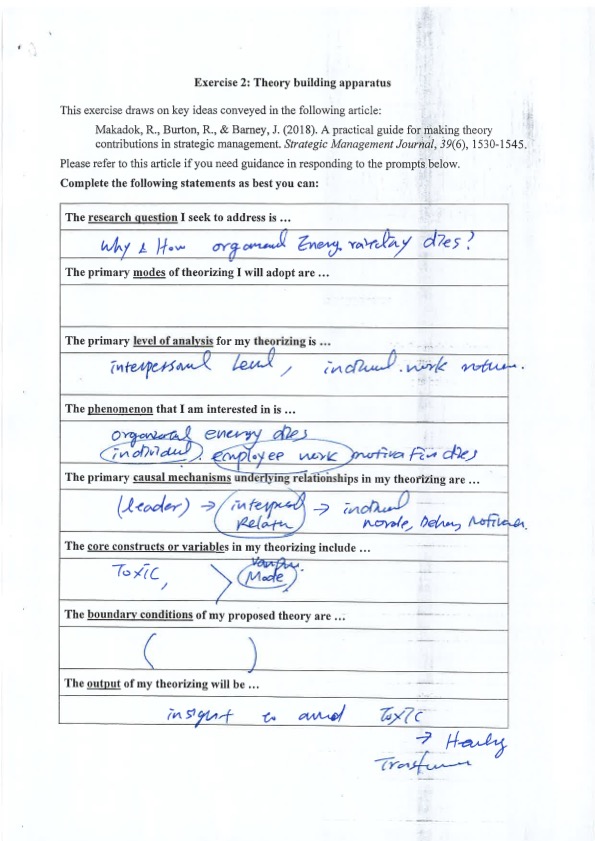 Exercise 2: Theory building apparatus
This exercise draws on key ideas conveyed in the following article:
Makadok, R., Burton, R., & Barney, J. (2018). A practical guide for making theory
contributions in strategic management. Strategic Management Journal, 39(6), 1530-1545.
Please refer to this article if you need guidance in responding to the prompts below.
Complete the following statements as best you can:
The research question I seek to address is ...
Why & How Energy dies?
The primary modes of theorizing I will adopt are ...
The primary level of analysis for my theorizing is ...
interpersonal level, work
The phenomenon that I am interested in is ...
energy dies
individual. employee work motivation dies
The primary causal mechanisms underlying relationships in my theorizing are ...
(leader) → →
The core constructs or variables in my theorizing include ...
Toxic,
(Mode)
The boundary conditions of my proposed theory are ...
( )
The output of my theorizing will be ...
insight Toxic
→